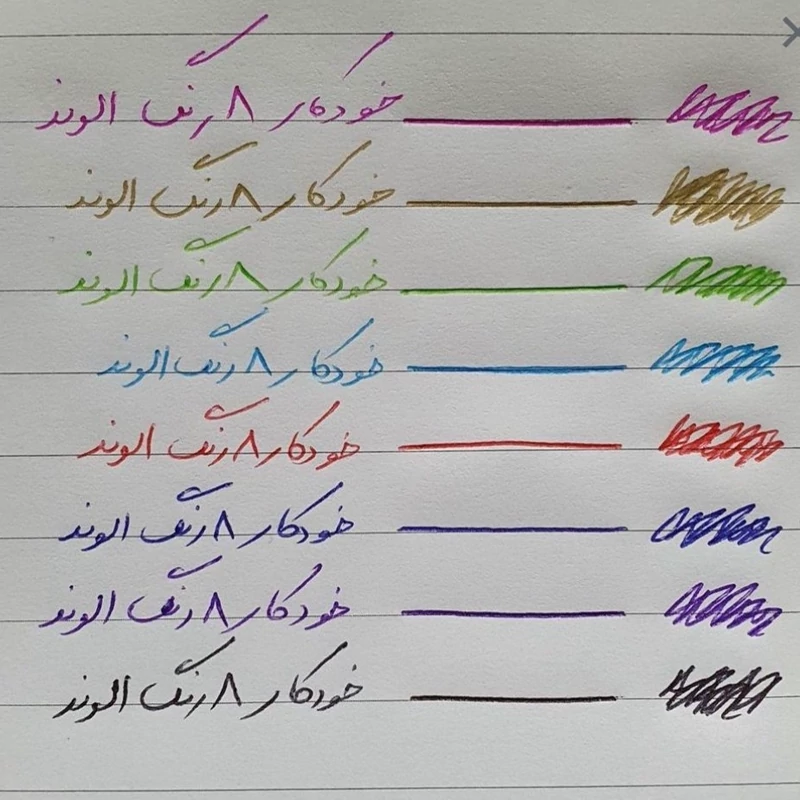 خودکار ۸ رنگ الوند
خودکار ۸ رنگ الوند
خودکار ۸ رنگ الوند
خودکار ۸ رنگ الوند
خودکار ۸ رنگ الوند
خودکار ۸ رنگ الوند
خودکار ۸ رنگ الوند
خودکار ۸ رنگ الوند